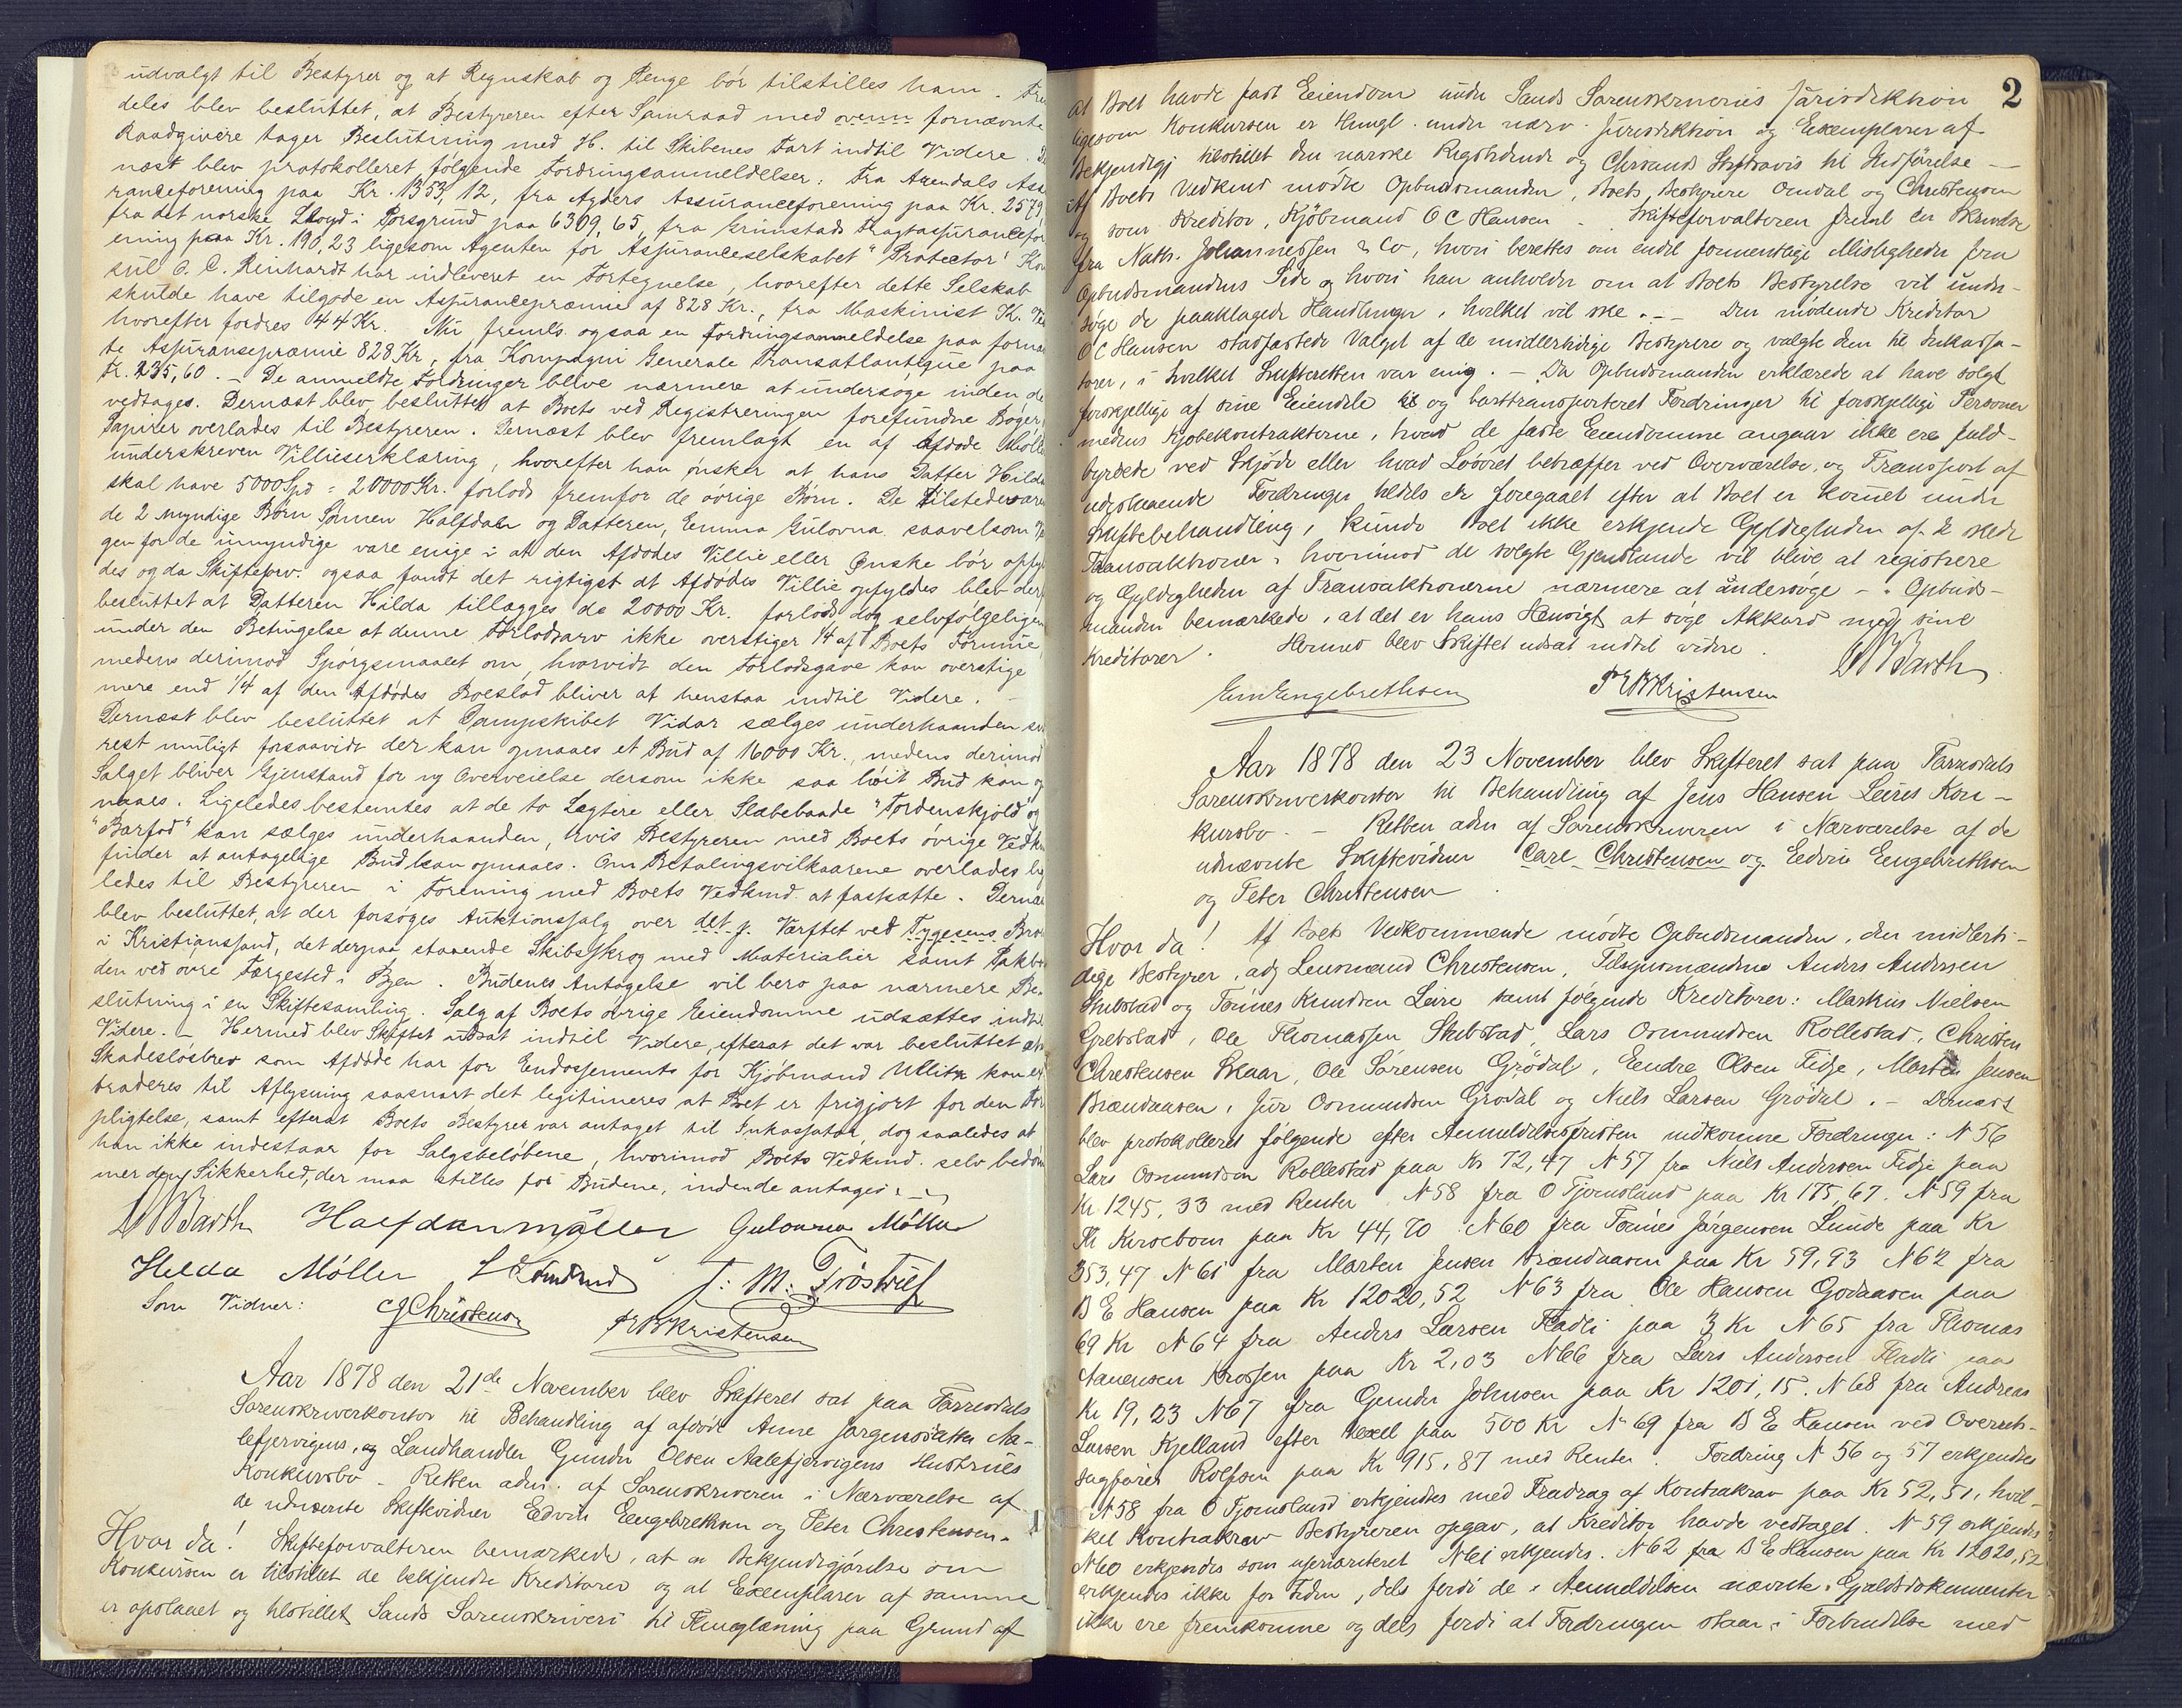 udvalgt til Bestyrer og at Regnskab og Penge bør tilstilles ham.
deles blev besluttet, at Bestyreren efter Samraad med ovenn fornævnte
Raadgivere tager Beslutning med H. til Skibenes Fart indtil Videre.
næst blev protokolleret følgende Fordringsanmeldelser: Fra Arendals Assu
ranceforening paa Kr. 1353,12, fra Agders Assuranceforening paa Kr. 2579
fra det norske Lloyd i Porsgrund paa 6309,65, fra Grimstads Fragtassurancefor
ening paa Kr. 190,23 ligesom Agenten for Assuranceselskabet "Protector" Kon
sul O. C. Reinhardt har indleveret en Fortegnelse, hvorefter dette Selskab
skulde have tilgode en Assurancepræmie af 828 Kr., fra Maskinist K.
hvorefter fordres 44 Kr. fremls. ogsaa en Fordringsanmeldelse paa fornæ
te Assurancepræmie 828 Kr, fra Kompagni Generale Transatlantique paa
Kr. 235,60. - De anmeldte Fordringer blive nærmere at undersøge inden de
vedtages. Dernæst blev besluttet at Boets ved Registreringen forefundne Bøger
Papirer overlades til Bestyreren. Dernæst blev fremlagt en af Afdøde Mølle
underskreven Villieserklæring, hvorefter han ønsker at hans Datter Hilda
skal have 5000 Spd = 20000 Kr. forlods fremfor de øvrige Børn. De tilstedevære
de 2 myndige Børn Sønnen Halfdan og Datteren, Emma Gulovna saavelsom
gen for de umyndige vare enige i at den Afdødes Villie eller Ønske bør opfy
des og da Skifteforv. ogsaa fandt det rigtigst at Afdødes Villie opfyldes blev der
besluttet at Datteren Hilda tillægges de 20000 Kr. forlods, dog selvfølgeligen
under den Betingelse at denne Forlodsarv ikke overstiger 1/4 af Boets Formue,
medens derimod Spørgsmaalet om, hvorvidt den Forlodsgave kan overstige
mere end 1/4 af den Afdødes Boeslod bliver at henstaa indtil Videre. -
Dernæst blev besluttet at Dampskibet Vidar sælges underhaanden sna
rest muligt forsaavidt der kan opnaaes et Bud af 16000 Kr., medens derimod
Salget bliver Gjenstand for ny Overveielse dersom ikke saa høit Bud kan op
naaes. Ligeledes bestemtes at de to Lægtere eller Slæbebaade "Tordenskjold og
"Barfod" kan sælges underhaanden, hvis Bestyreren med Boets øvrige Vedk
finder at antagelige Bud kan opnaaes. Om Betalingsvilkaarene overlades lig
ledes til Bestyreren i Forening med Boets Vedkmd. at fastsætte. Dernæ
blev besluttet, at der forsøges Auktionssalg over det s. Værftet ved Tygesens Bro
i Kristianssand, det derpaa staaende Skibsskrog med Materialier samt Pakbo
den ved øvre Færgested i Byen. Budenes Antagelse vil bero paa nærmere Be-
slutning i en Skiftesamling. Salg af Boets øvrige Eiendomme udsættes indtil
Videre. - Hermed blev Skiftet udsat indtil Videre, efterat det var besluttet at
Skadesløsbrev som Afdøde har for Endossements for Kjøbmand Ullitz kan ex
traderes til Aflysning saasnart det legitimeres at Boet er frigjort for den For
pligtelse, samt efterat Boets Bestyrer var antaget til Inkassator, dog saaledes at
han ikke indestaar for Salgsbeløbene, hvorimod Boets Vedkmd. selv bedøm
mer den Sikkerhed, der maa stilles for Budene, inden de antages.
Barth Halfdan Møller Gulovna Møller
Helda Møller J. M. Frøstrup
Som Vidner: C J Christensen P E B Kristensen
Aar 1878 den 21de November blev Skifteret sat paa Farresdals
Sorenskriverkontor til Behandling af afdøde Anne Jørgensdatter Aa-
lefjervigens, og Landhandler Gunder Olsen Aalefjervigens Hustrues
Konkursbo - Retten adm. af Sorenskriveren i Nærværelse af
de udnævnte Skiftevidner Edvin Engebrethsen og Peter Christensen.
Hvor da! Skifteforvalteren bemærkede, at en Bekjendtgjørelse om
Konkursen er tilstillet de bekjendte Kreditorer og at Exemplarer af samme
er opslaaet og tilstillet Sands Sorenskriveri til Thinglæsning paa Grund af
2
at Boet havde fast Eiendom under Sands Sorenskriveries Jurisdiktion
ligesom Konkursen er thingl. under nærv. Jurisdiktion og Exemplarer af
Bekjendtgj tilstillet den norske Rigstidende og Chrsands Stiftsavis til Indførelse -
Af Boets Vedkmd mødte Opbudsmanden, Boets Bestyrere Omdal og Christensen
og som Kreditor, Kjøbmand O C Hansen - Skifteforvalteren freml en Skrivelse
fra Nath. Johannessen & Co, hvori berettes om endel formentlige Misligheder fra
Opbudsmandens Side og hvori han anholder om at Boets Bestyrelse vil under-
søge de paaklagede Handlinger, hvilket vil ske. - Den mødende Kreditor
O C Hansen stadfæstede Valget af de midlertidige Bestyrere og valgte dem til Inkassa-
torer, i hvilket Skifteretten var enig. - Da Opbudsmanden erklærede at have solgt
forskjellige af sine Eiendele og borttransporteret Fordringer til forskjellige Personer
medens Kjøbekontrakterne, hvad de faste Eiendomme angaar ikke ere fuld-
byrdede ved Skjøde eller hvad Løsøret betræffer ved Overværelse, og Transport af
udestaaende Fordringer tildels er foregaaet efter at Boet er kommet under
Skiftebehandling, kunde Boet ikke erkjende Gyldigheden af de skede
Transaktioner, hvorimod de solgte Gjenstande vil blive at registrere
og Gyldigheden af Transaktionerne nærmere at undersøge - Opbuds-
manden bemærkede, at det er hans Hensigt at søge Akkord med sine
Kreditorer. Hermed blev Skiftet udsat indtil videre.
Barth
Em Engebrethsen P E B Kristensen
Aar 1878 den 23 November blev Skifteret sat paa Farresdals
Sorenskriverkontor til Behandling af Jens Hansen Leires Kon-
kursbo. - Retten adm af Sorenskriveren i Nærværelse af de
udnævnte Skiftevidner Carl Christensen og Eedvin Eengebrethsen
og Peter Christensen
Hvor da! Af Boets Vedkommende mødte Opbudsmanden, den midlerti-
dige Bestyrer, adj Lensmand Christensen, Tilsynsmændene Anders Andersen
Stubstad og Tønnes Knudsen Leire samt følgende Kreditorer: Markus Nielsen
Grebstad, Ole Thomassen Stubstad, Lars Osmundsen Rollestad, Christen
Christensen Skaar, Ole Sørensen Grødal, Eendre Olsen Fidje, Morten Jensen
Brændaasen, Jur Osmundsen Grødal og Niels Larsen Grødal. - Dernæst
blev protokolleret følgende efter Anmeldelsesfristen indkomne Fordringer: N 56
Lars Osmundsen Rollestad paa Kr 72,47 N 57 fra Niels Andersen Fidje paa
Kr 1245,33 med Renter. N 58 fra O Tjomsland paa Kr 175,67. N 59 fra
Th Kirsebom paa Kr 44,70. N 60 fra Tønnes Jørgensen Lunde paa Kr
353,47 N 61 fra Morten Jensen Brændaasen paa Kr 59,93 N 62 fra
B E Hansen paa Kr 12020,52 N 63 fra Ole Hansen Godaasen paa
69 Kr N 64 fra Anders Larsen Fladli paa 3 Kr N 65 fra Thomas
Aanensen Krossen paa Kr 2,03 N 66 fra Lars Andersen Fladli paa
Kr 19,23 N 67 fra Gunder Johnsen paa Kr 1201,15. N 68 fra Andreas
Larsen Kjelland efter Vexel paa 500 Kr N 69 fra B E Hansen ved Overrets-
sagfører Rolfsen paa Kr 915,87 med Renter. Fordring N 56 og 57 erkjendtes
N 58 fra O Tjomsland erkjendtes med Fradrag af Kontrakrav paa Kr 52,51, hvil-
ket Kontrakrav Bestyreren opgav, at Kreditor havde vedtaget. N 59 erkjendes
N 60 erkjendes som uprioriteret N 61 erkjendes. N 62 fra B E Hansen paa Kr 12020,52
erkjendes ikke for Tiden, dels fordi de i Anmeldelsen nævnte Gjældsdokumenter
ikke ere fremkomne og dels fordi at Fordringen staar i Forbindelse med